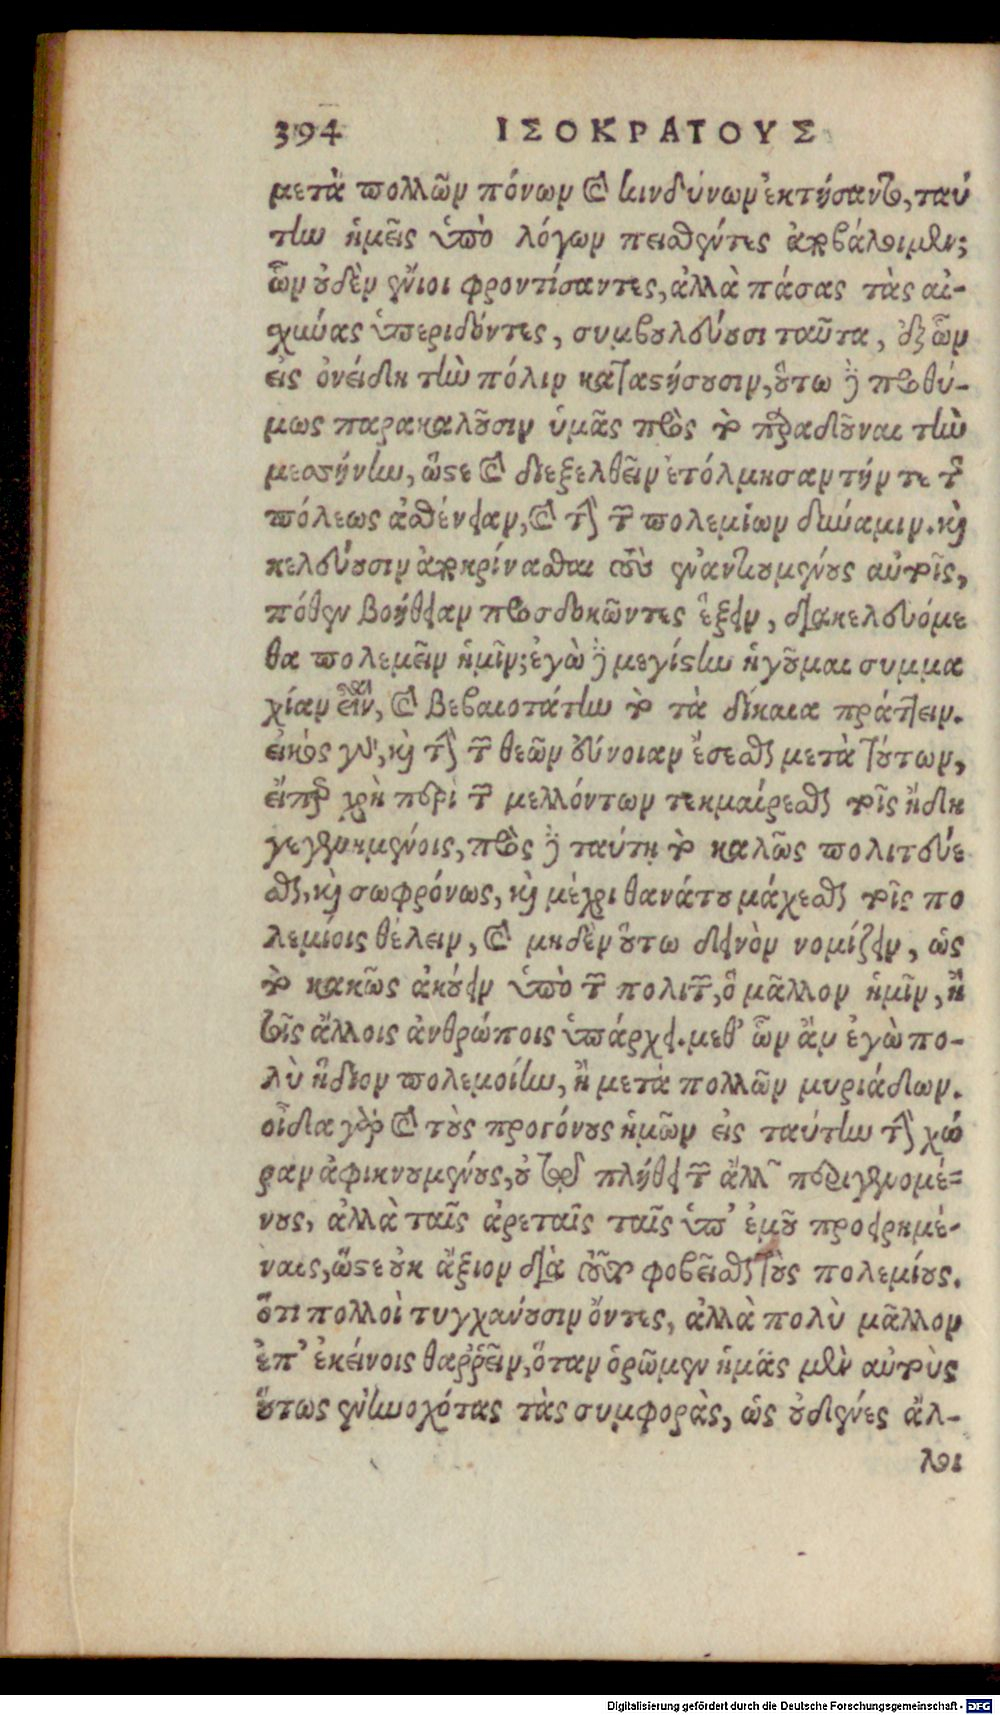 394 ΙΣΟΚΡΑΤΟΥΣ
μετὰ πολλῶν πόνων καὶ κινδύνων ἐκτήσαντο, ταύ
την ἡμεῖς ὑπὸ λόγων πεισθέντες ἀποβάλοιμεν;
ὧν οὐδὲν ἔνιοι φροντίσαντες, ἀλλὰ πάσας τὰς αἰ-
χύνας ὑπεριδόντες, συμβουλεύουσι ταῦτα, ἐξ ὧν
εἰς ὀνείδη τὴν πόλιν καταστήσουσιν, οὕτω δὲ προθύ-
μως παρακαλοῦσιν ὑμᾶς πρὸς τὸ παραδοῦναι τὴν
μεσσήνην, ὥστε καὶ διεξελθεῖν ἐτόλμησαν τήν τε τῆς
πόλεως ἀσθένειαν, καὶ τὴν τῶν πολεμίων δύναμιν. καὶ
κελεύουσιν ἀποκρίνασθαι τοὺς ἐναντιουμένους αὐτοῖς,
πόθεν βοήθειαν προσδοκῶντες ἥξειν, διακελευόμε
θα πολεμεῖν ἡμῖν; ἐγὼ δὲ μεγίστην ἡγοῦμαι συμμα
χίαν εἶναι, καὶ βεβαιοτάτην τὸ τὰ δίκαια πράττειν.
εἰκὸς γὰρ, καὶ τὴν τῶν θεῶν εὔνοιαν ἔσεσθαι μετὰ τούτων,
εἴπερ χρὴ περὶ τῶν μελλόντων τεκμαίρεσθαι τοῖς ἤδη
γεγενημένοις, πρὸς δὲ ταύτῃ τὸ καλῶς πολιτεύε
σθαι, καὶ σωφρόνως, καὶ μέχρι θανάτου μάχεσθαι τοῖς πο
λεμίοις θέλειν, καὶ μηδὲν οὕτω δεινὸν νομίζειν, ὡς
τὸ κακῶς ἀκούειν ὑπὸ τῶν πολιτῶν, ὃ μᾶλλον ἡμῖν, ἢ
τοῖς ἄλλοις ἀνθρώποις ὑπάρχει. μεθ' ὧν ἂν ἐγὼ πο-
λὺ ἥδιον πολεμοίην, ἢ μετὰ πολλῶν μυριάδων.
οἶδα γὰρ καὶ τοὺς προγόνους ἡμῶν εἰς ταύτην τὴν χώ
ραν ἀφικνουμένους, οὐ τῷ πλήθει τῶν ἄλλων περιγενομέ-
νους, ἀλλὰ ταῖς ἀρεταῖς ταῖς ὑπ' ἐμοῦ προειρημέ-
ναις, ὥστε οὐκ ἄξιον διὰ τοῦτο φοβεῖσθαι τοὺς πολεμίους.
ὅτι πολλοὶ τυγχάνουσιν ὄντες, ἀλλὰ πολὺ μᾶλλον
ἐπ' ἐκείνοις θαῤῥεῖν, ὅταν ὁρῶμεν ἡμᾶς μὲν αὐτοὺς
οὕτως ἐνηνοχότας τὰς συμφορὰς, ὡς οὐδένες ἄλ-
λοι
Digitalisierung gefördert durch die Deutsche Forschungsgemeinschaft - DFG